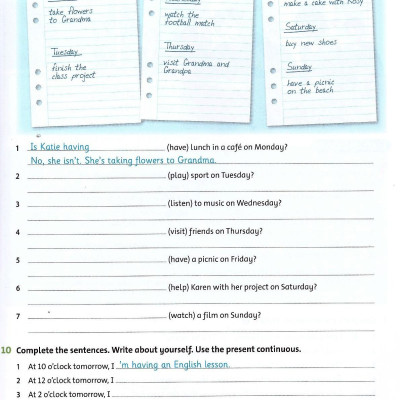 take flowers
to Grandma
Tuesday
finish the
class project
watch the
football match
Thursday
visit Grandma and
Grandpa
make a cake with Rosy
Saturday
buy new shoes
Sunday
have a picnic
on the beach
1 Is Katie having (have) lunch in a café on Monday?
No, she isn't. She's taking flowers to Grandma.
2 (play) sport on Tuesday?
3 (listen) to music on Wednesday?
4 (visit) friends on Thursday?
5 (have) a picnic on Friday?
6 (help) Karen with her project on Saturday?
7 (watch) a film on Sunday?
10 Complete the sentences. Write about yourself. Use the present continuous.
1 At 10 o'clock tomorrow, I 'm having an English lesson.
2 At 12 o'clock tomorrow, I
3 At 2 o'clock tomorrow, I